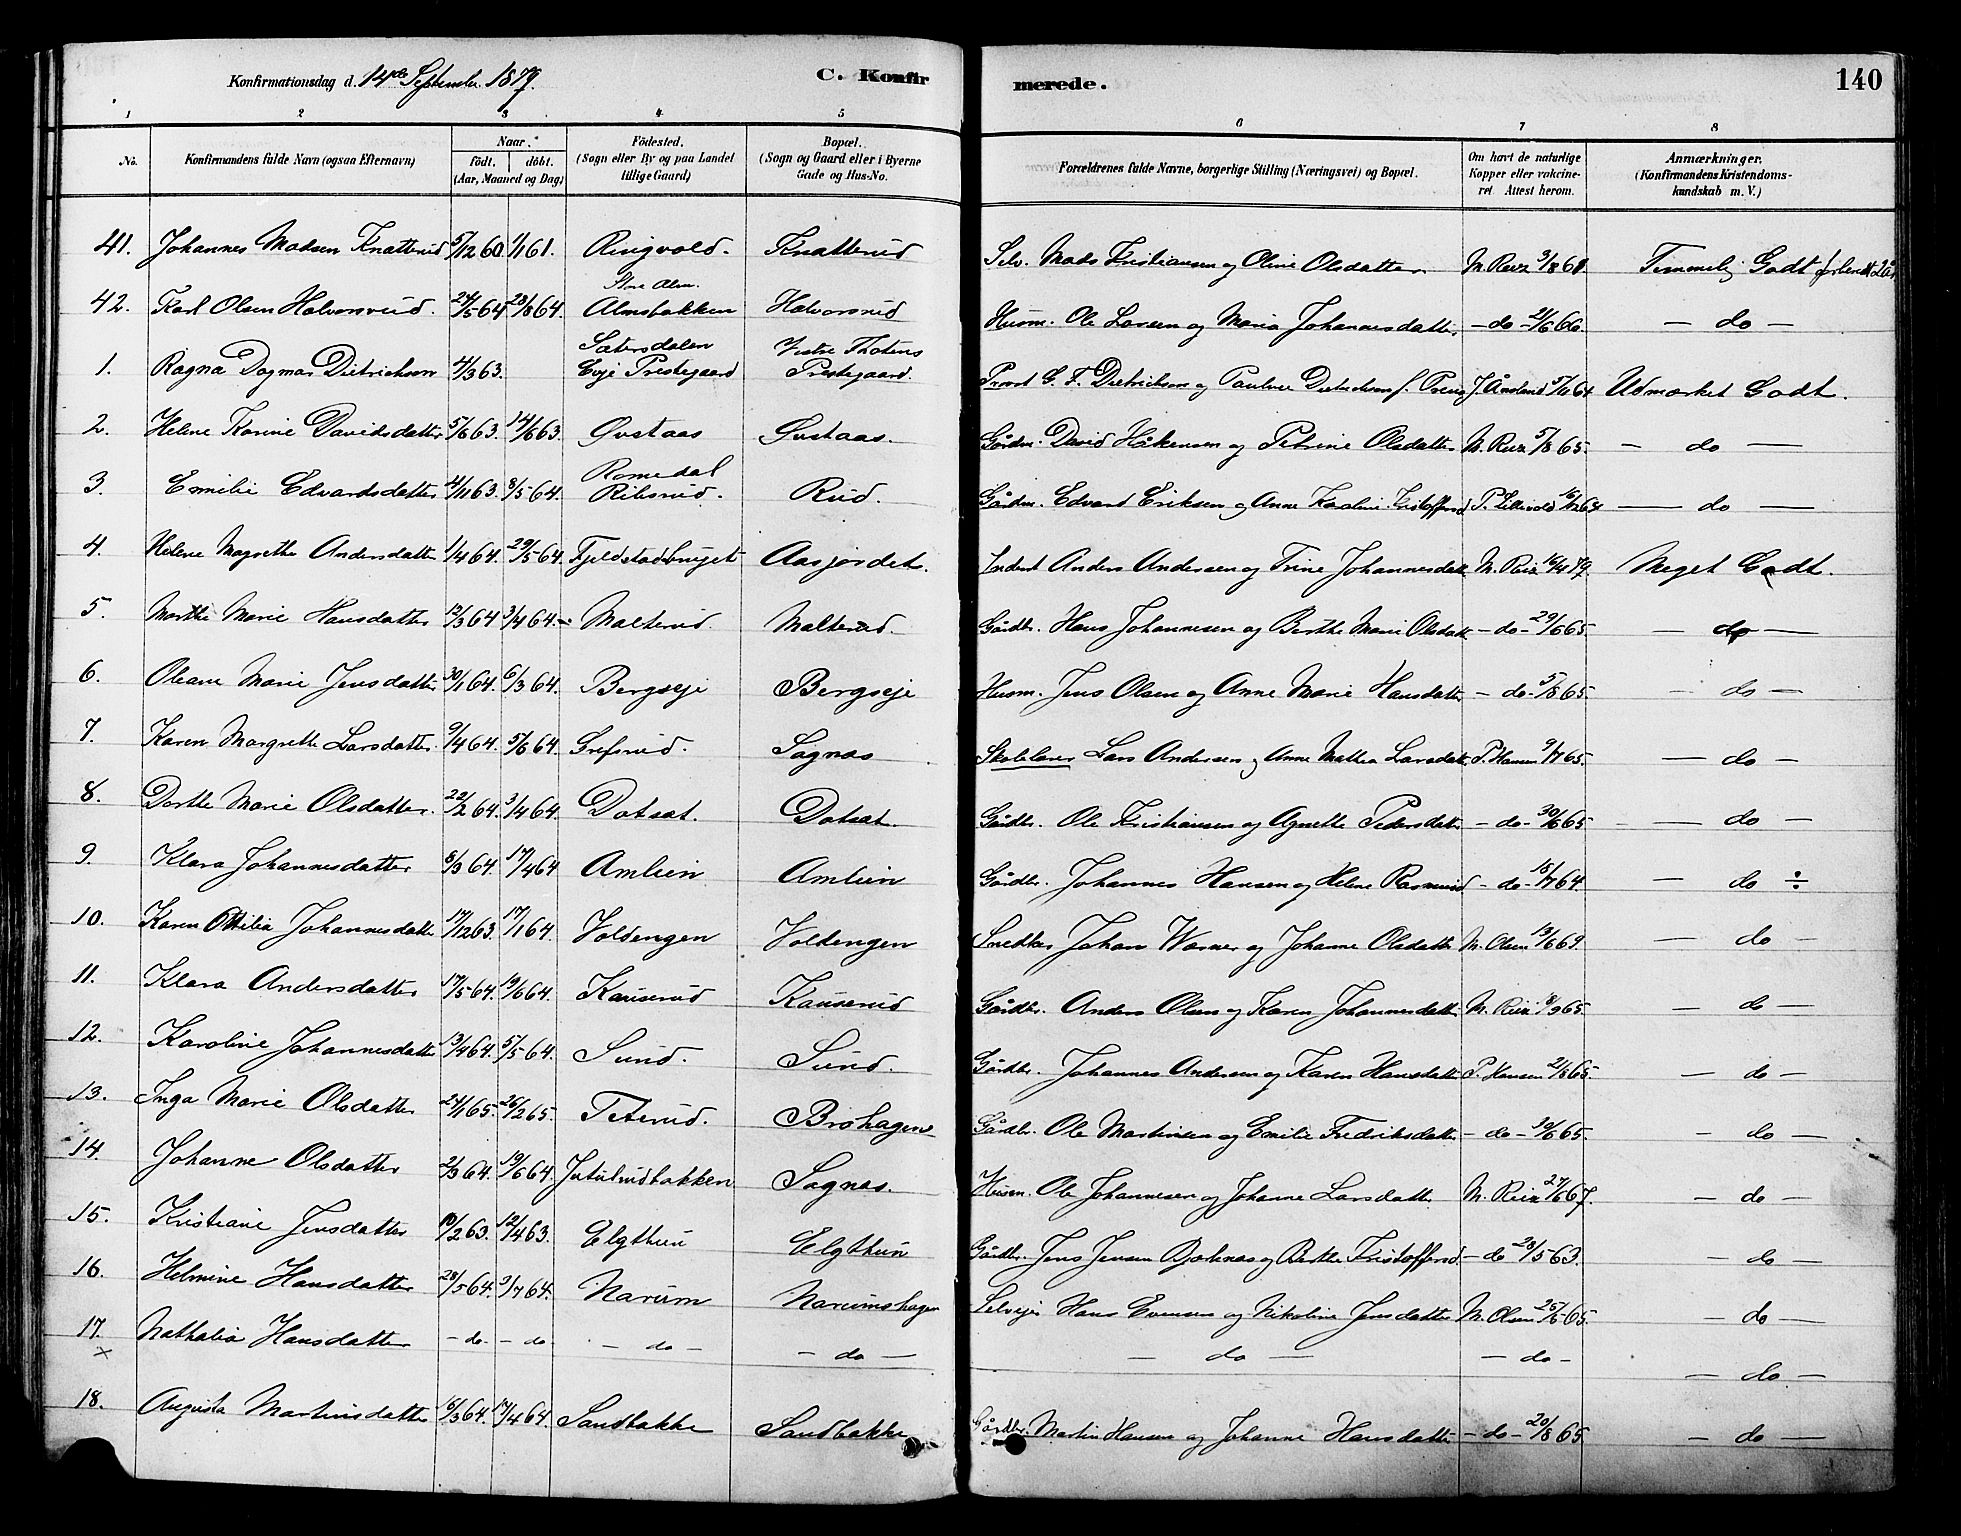 Konfirmationsdag d. 14de September 1879.
C. Konfirmerede.
140
1 2 3 4 5 6 7 8
No. Konfirmandens fulde Navn (ogsaa Efternavn) Naar.* födt. döbt. (Aar, Maaned og Dag) Födested. (Sogn eller By og paa Landet tillige Gaard) Bopæl. (Sogn og Gaard eller i Byerne Gade og Hus-No. Forældrenes fulde Navne, borgerlige Stilling (Næringsvei) og Bopæl. Om havt de naturlige Kopper eller vakcineret. Attest herom. Anmærkninger. (Konfirmandens Kristendomskundskab m. V.)
41. Johannes Madsen Knatterud 5/12 60. 1/1 61. Ringvold. Knatterud Selv. Mads Kristiansen og Oline Olsdatter M. Reiz 3/8 61 Temmelig Godt
42. Karl Olsen Halvorsrud. 24/5 64 23/8 64. Almsbakken Halvorsrud Husm. Ole Larsen og Maria Johannesdatter - do - 21/6 66. - do -
1. Ragna Dagmar Dietrichson 4/3 63. Sætersdalen Evje Prestegaard Vestre Thotens Prestegaard. Provst G. F. Dietrichson og Pauline Dietrichson f. Preus J. Åneland 5/11 64 Udmærket Godt.
2. Helene Karine Davidsdatter 5/6 63. 14/6 63. Øvstaas Øvstaas. Gårdm. David Håkensen og Petrine Olsdatter M. Reiz 5/8 65. - do -
3. Emilie Edvardsdatter 4/11 63. 8/5 64. Romedal Rilsrud. Rud. Gårdm. Edvard Eriksen og Anne Karoline Kristoffersd. - do -
4. Helene Magrethe Andersdatter 1/4 64. 29/5 64. Fjeldstadbruget Aasjordet. Inderst Anders Andersen og Trine Johannesdatt M. Reiz 16/4 79. Meget Godt.
5. Marthe Marie Hansdatter 12/3 64 3/4 64. Malterud. Malterud. Gårdbr. Hans Johannesen og Berthe Marie Olsdatt - do - 29/6 65. - do -
6. Oleane Marie Jensdatter 30/1 64. 6/3 64. Bergseje Bergseje Husm. Jens Olsen og Anne Marie Hansdatter - do - 5/8 65. - do -
7. Karen Margrethe Larsdatter. 9/4 64. 5/6 64. Grefsrud. Sagnæs Skolelærer Lars Andersen og Anne Mathea Larsdatt P. Hansen 9/7 65. - do -
8. Dorthe Marie Olsdatter. 22/2 64. 3/4 64. Dotset. Dotset. Gårdbr. Ole Kristiansen og Agnethe Pedersdatt - do - 30/6 65 - do -
9. Klara Johannesdatter 8/3 64. 17/4 64 Amlien Amlien Gårdbr. Johannes Hansen og Helene Rasmusd - do - 18/7 64 - do ÷
10. Karen Ottilia Johannesdatte 17/12 63. 17/1 64. Voldengen Voldengen Snedker Johan Warner og Johanne Olsdatter M. Olsen 13/6 69. - do -
11. Klara Andersdatter 17/5 64. 19/6 64. Kauserud Kauserud Gårdbr. Anders Olsen og Karen Johannesdatt M. Reiz 8/9 65. - do -
12. Karoline Johannesdatter 13/4 64. 5/5 64. Sund. Sund. Gårdbr. Johannes Andersen og Karen Hansdatt P. Hansen 21/8 65. - do -
13. Inga Marie Olsdatter 24/1 65. 26/2 65. Teterud. Brohagen Gårdbr. Ole Martinsen og Emilie Fredriksdatt - do - 10/6 65. - do -
14. Johanne Olsdatter 2/3 64. 19/6 64. Jutulrudbakken Sagnæs. Husm. Ole Johannesen og Johanne Larsdatt M. Reiz 27/6 67. - do -
15. Kristiane Jensdatter 10/2 63. 12/4 63. Elgthun Elgthun Gårdbr. Jens Jensen og Berthe Kristoffersd. - do 28/5 63. - do -
16. Helmine Hansdatter 28/5 64. 3/7 64. Narum Narumshagen Selvejer Hans Evensen og Nikoline Jensdatter M. Olsen 25/6 65. - do -
17. × Nathalia Hansdatter - do - - do - do - - do - - do - - do - - do -
18. Augusta Martinsdatter 16/3 64. 17/4 64. Sandbakke Sandbakke Gårdbr. Martin Hansen og Johanne Hansdatt - do - 20/8 65 - do -